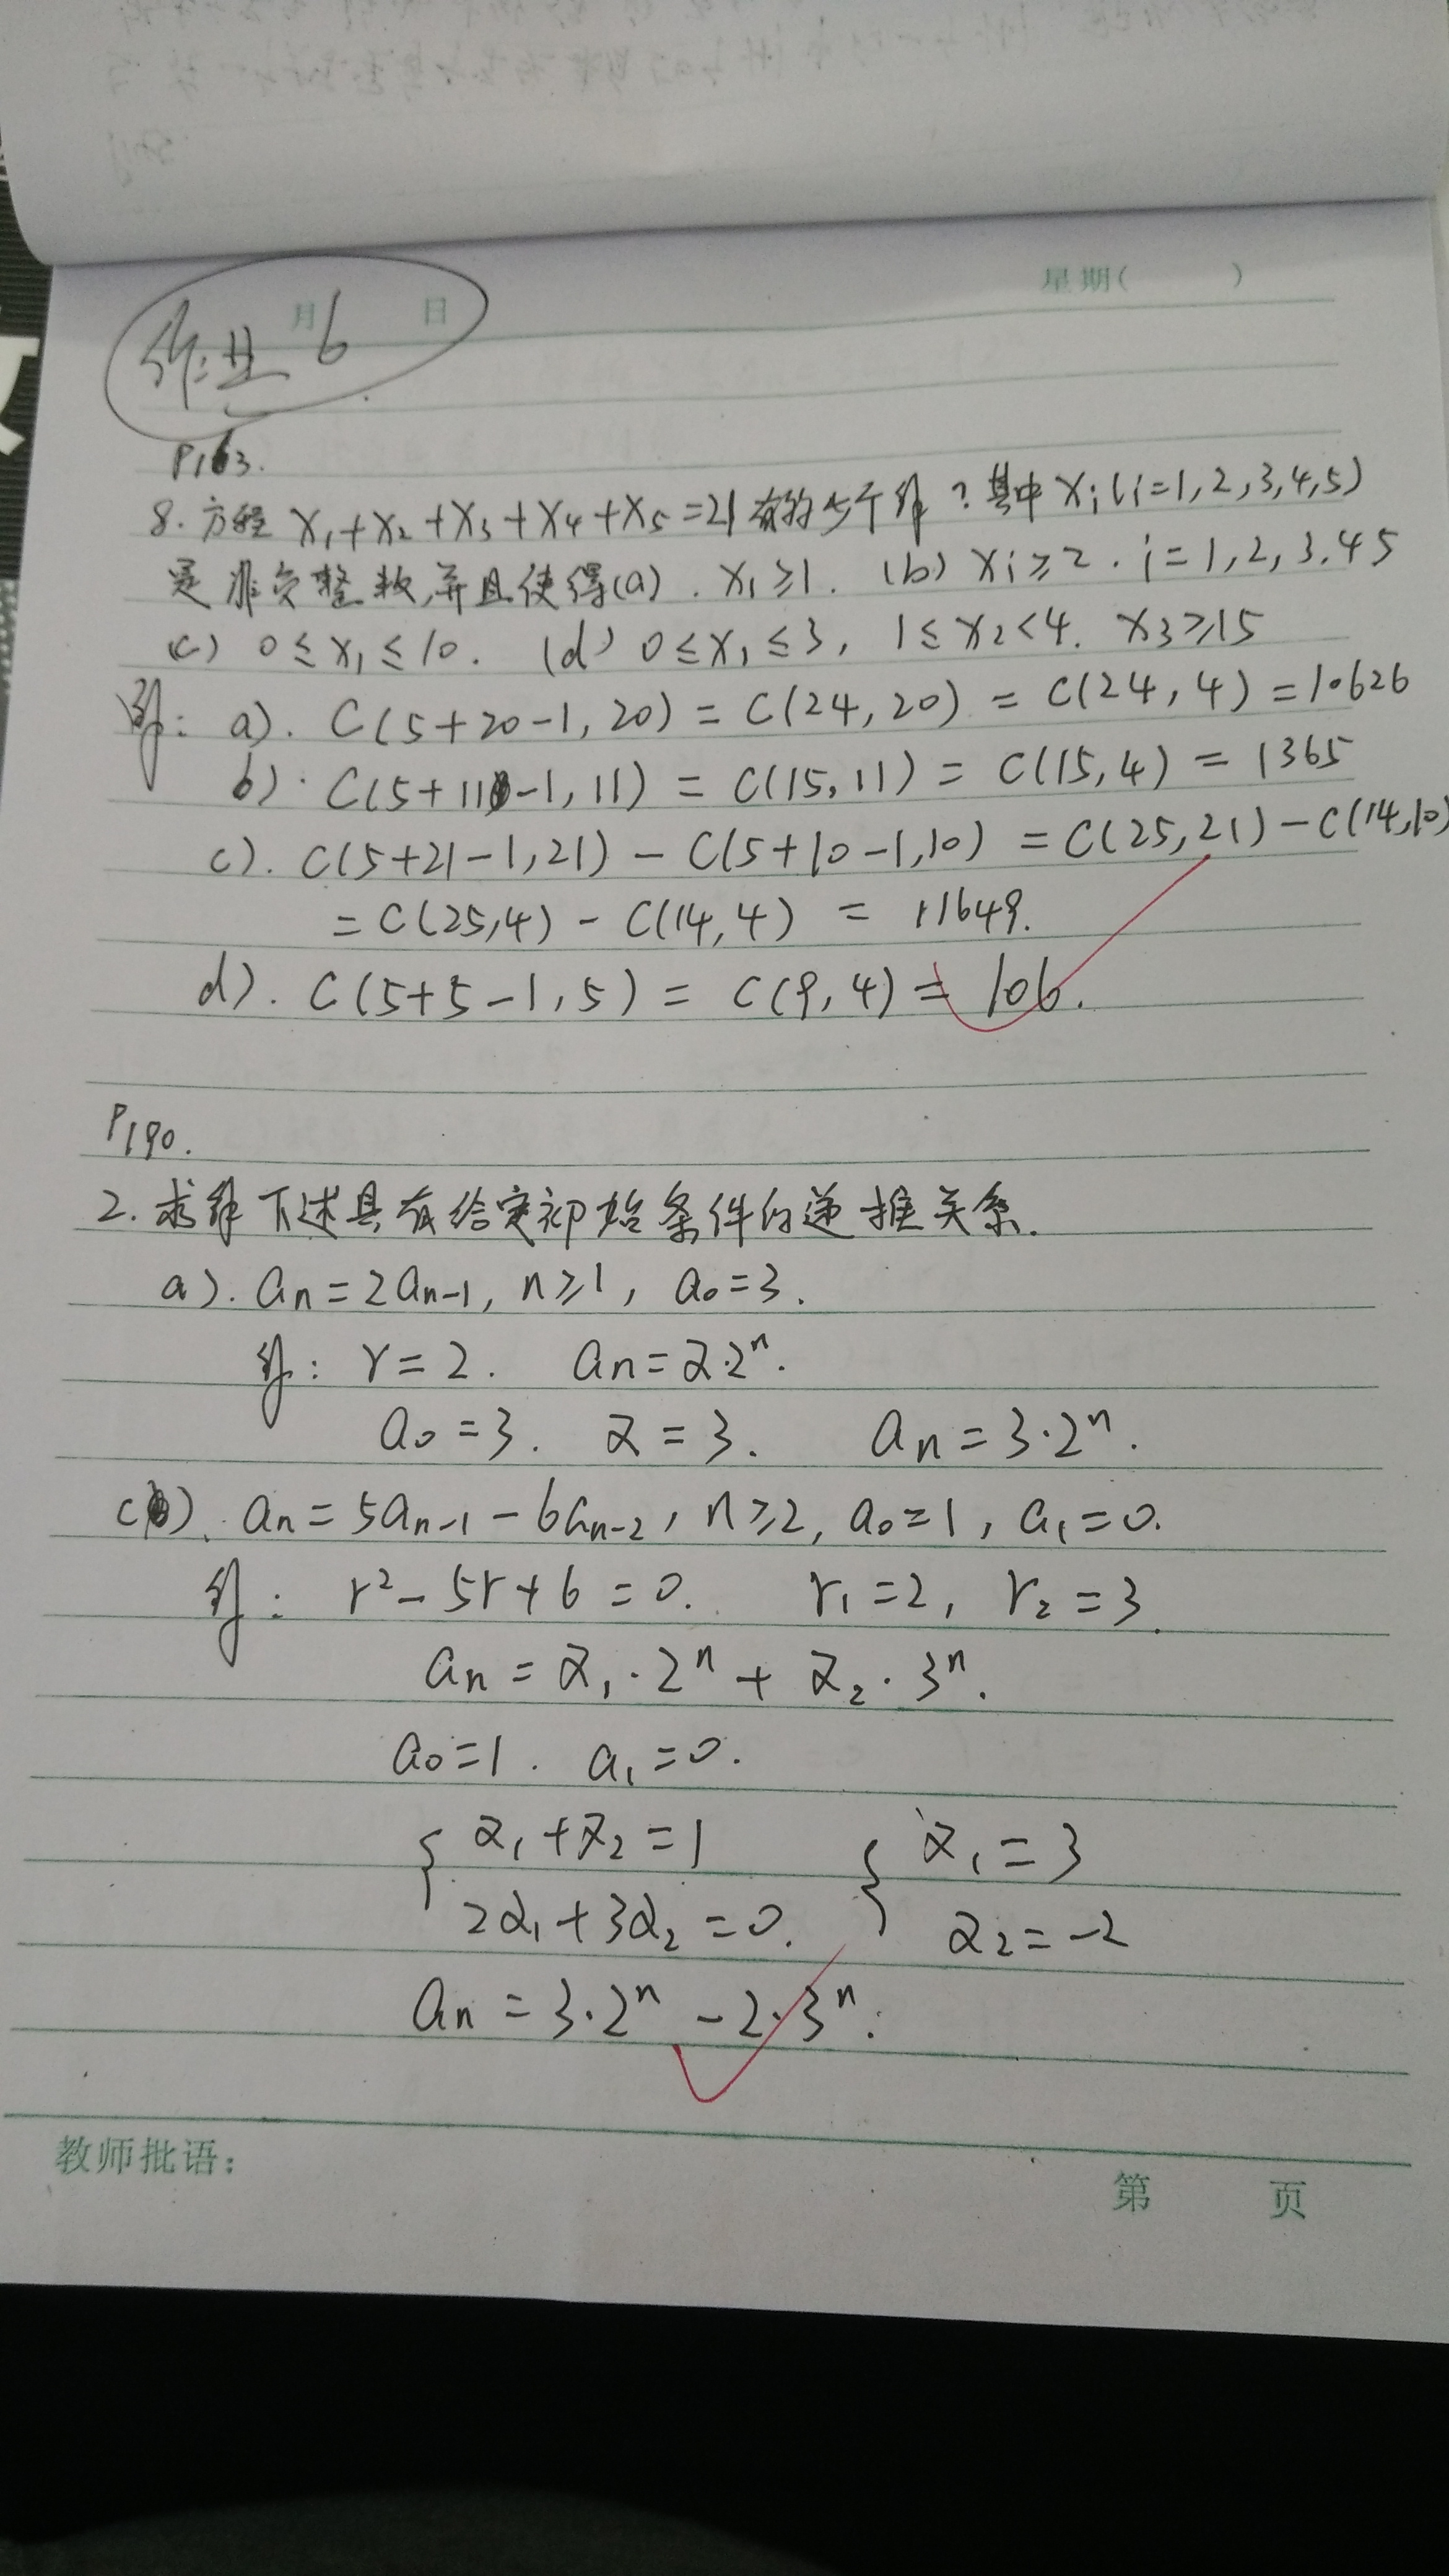 星期( )
月 日
作业6
P163.
8. 方程 x₁+x₂+x₃+x₄+x₅=21 有的多少个解？其中 xᵢ(i=1,2,3,4,5)
是非负整数,并且使得(a). x₁≥1. (b) xᵢ≥2. i=1,2,3.45
(c) 0≤x₁≤10. (d) 0≤x₁≤3, 1≤x₂<4. x₃≥15
解: a). C(5+20-1, 20) = C(24, 20) = C(24, 4) = 10626
b). C(5+11-1, 11) = C(15, 11) = C(15, 4) = 1365
c). C(5+21-1, 21) - C(5+10-1, 10) = C(25, 21) - C(14, 10)
= C(25, 4) - C(14, 4) = 11649.
d). C(5+5-1, 5) = C(9, 4) = 106.
P190.
2. 求解下述具有给定初始条件的递推关系.
a). aₙ=2aₙ₋₁, n≥1, a₀=3.
解: r=2. aₙ=α·2ⁿ.
a₀=3. α=3. aₙ=3·2ⁿ.
c). aₙ=5aₙ₋₁-6aₙ₋₂, n≥2, a₀=1, a₁=0.
解: r²-5r+6=0. r₁=2, r₂=3.
aₙ=α₁·2ⁿ+α₂·3ⁿ.
a₀=1. a₁=0.
{ α₁+α₂=1 { α₁=3
2α₁+3α₂=0. α₂=-2
aₙ=3·2ⁿ-2·3ⁿ.
教师批语:
第 页